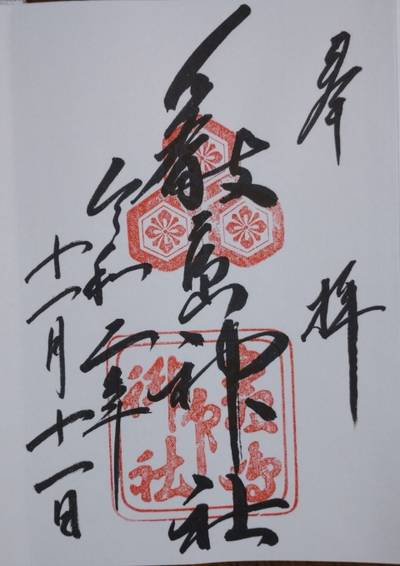 奉拝
嚴島神社
令和二年
十一月十一日